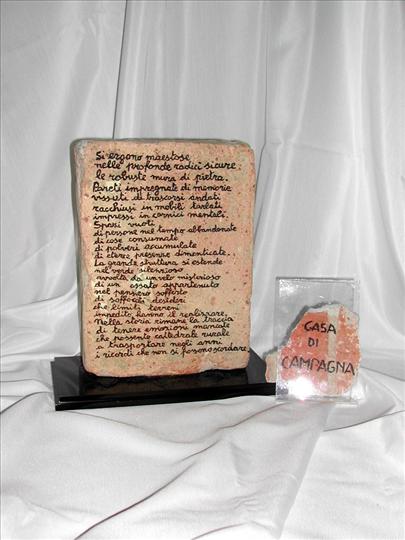 Si ergono maestose
nelle profonde radici sicure
le robuste mura di pietra.
Pareti impregnate di memorie
vissute da trascorsi andati
racchiusi in mobili tarlati
impressi in cornici mentali.
Spazi vuoti
di persone nel tempo abbandonate
di cose consumate
di polveri accumulate
di eteree presenze dimenticate.
La grande struttura si estende
nel verde silenzioso
avvolta da un velo misterioso
di un passato appartenuto
nel pensiero sofferto
di soffocati desideri
che limiti terreni
impedito hanno il realizzare.
Nella storia rimane la traccia
di tenere emozioni mancate
che possente cattedrale rurale
a trasportare negli anni
i ricordi che non si possono scordare
CASA
DI
CAMPAGNA